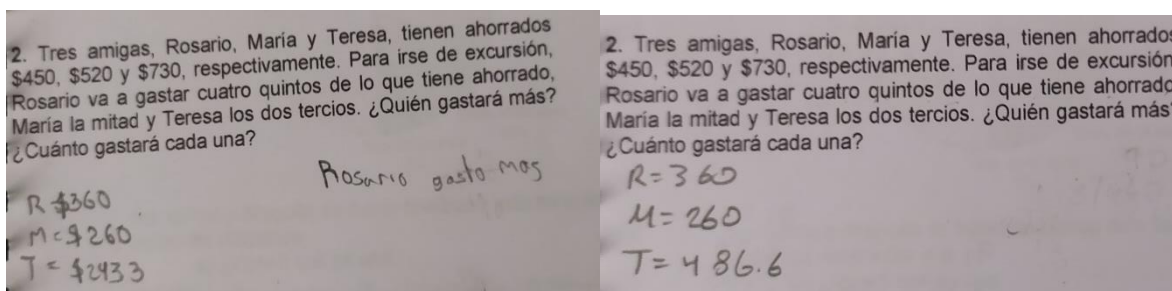 2. Tres amigas, Rosario, María y Teresa, tienen ahorrados
$450, $520 y $730, respectivamente. Para irse de excursión,
Rosario va a gastar cuatro quintos de lo que tiene ahorrado,
María la mitad y Teresa los dos tercios. ¿Quién gastará más?
¿Cuánto gastará cada una?
Rosario gasto mas
R $360
M = $260
T = $2433
2. Tres amigas, Rosario, María y Teresa, tienen ahorrados
$450, $520 y $730, respectivamente. Para irse de excursión
Rosario va a gastar cuatro quintos de lo que tiene ahorrado
María la mitad y Teresa los dos tercios. ¿Quién gastará más
¿Cuánto gastará cada una?
R = 360
M = 260
T = 486.6